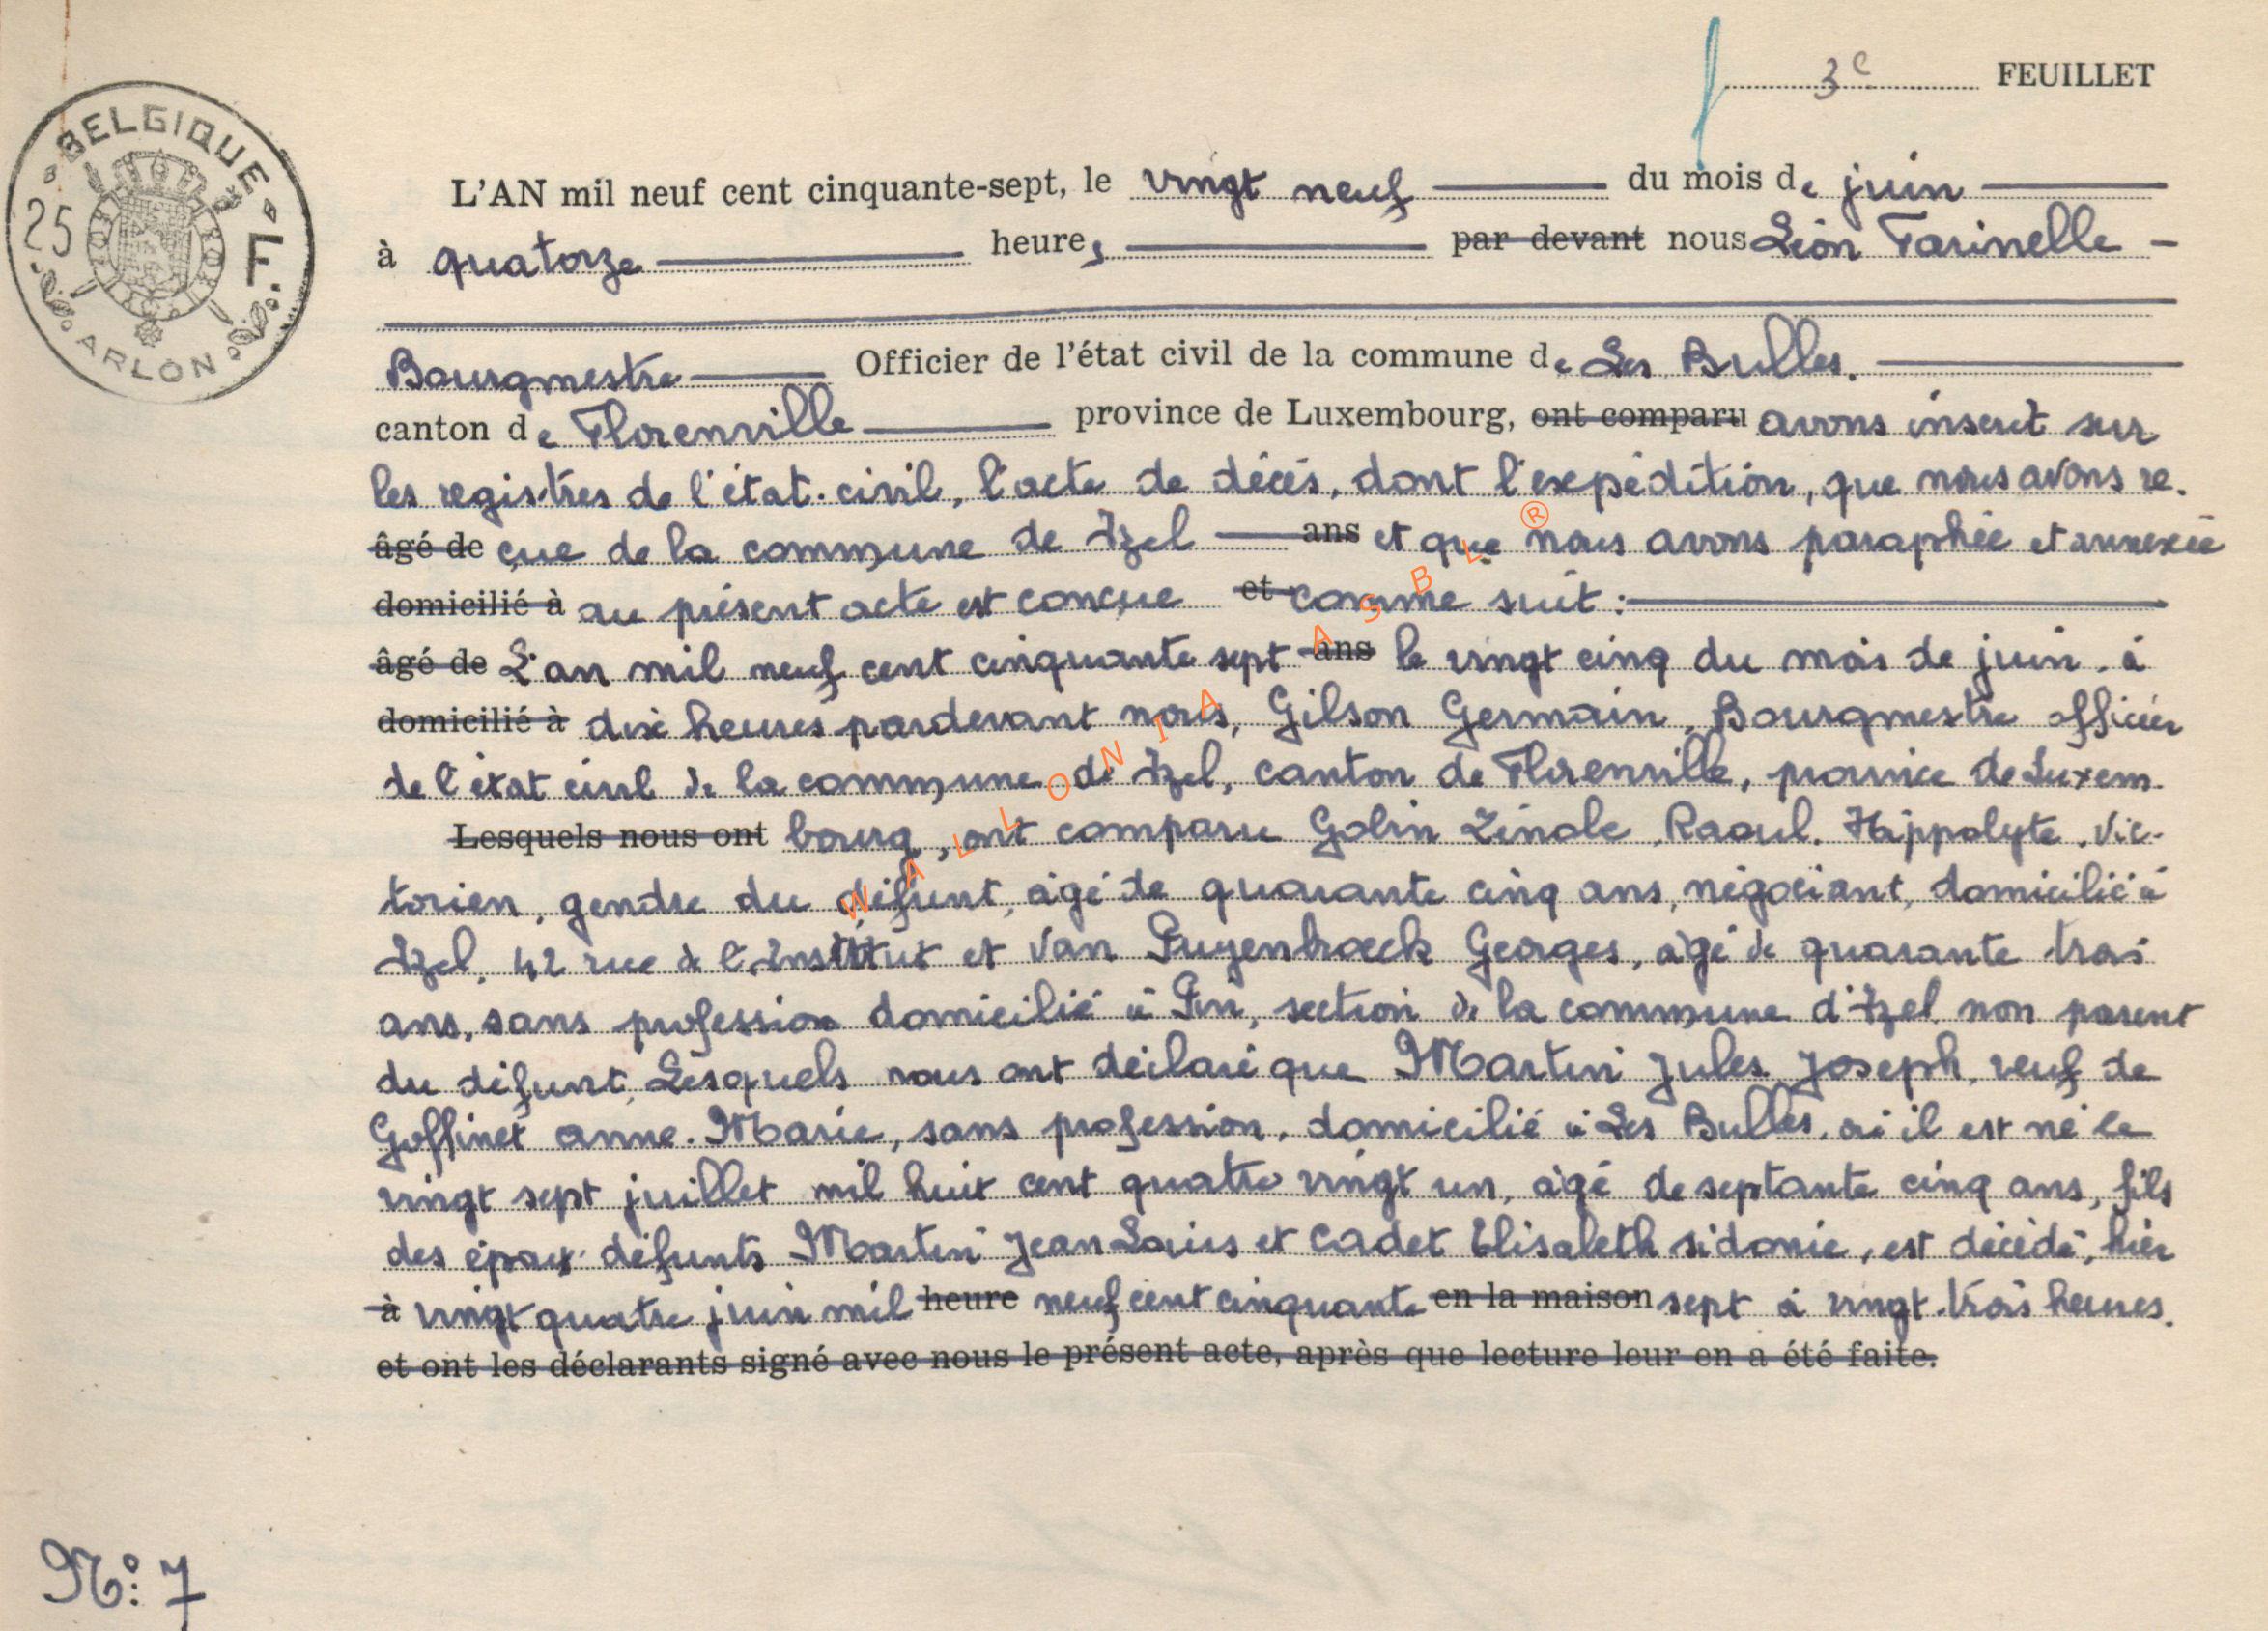 3e FEUILLET
BELGIQUE
25 F.
ARLON
L'AN mil neuf cent cinquante-sept, le vingt neuf du mois de juin
à quatorze heures par devant nous Léon Farinelle
Bourgmestre Officier de l'état civil de la commune de Les Bulles.
canton de Florenville province de Luxembourg, ont comparu avons inscrit sur
les registres de l'état-civil, l'acte de décès, dont l'expédition, que nous avons re-
âgé de çue de la commune de Izel ans et que nous avons paraphée et annexée
domicilié à au présent acte est conçue et comme suit :
âgé de L'an mil neuf cent cinquante sept ans le vingt cinq du mois de juin à
domicilié à dix heures pardevant nous, Gilson Germain, Bourgmestre officier
de l'état civil de la commune de Izel, canton de Florenville, province de Luxem-
Lesquels nous ont bourg, ont comparu Golin Zénole Raoul Hippolyte Vic-
torien, gendre du défunt, âgé de quarante cinq ans, négociant, domicilié à
Izel, 42 rue de l'Institut et Van Puyenbroeck Georges, âgé de quarante trois
ans, sans profession domicilié à Pin, section de la commune d'Izel non parent
du défunt, Lesquels nous ont déclaré que Martin Jules Joseph, veuf de
Goffinet Anne-Marie, sans profession, domicilié à Les Bulles, où il est né le
vingt sept juillet mil huit cent quatre vingt un, âgé de septante cinq ans, fils
des époux défunts Martin Jean Louis et Cadet Elisabeth Sidonie, est décédé, hier
à vingt quatre juin mil heure neuf cent cinquante en la maison sept à vingt-trois heures.
et ont les déclarants signé avec nous le présent acte, après que lecture leur en a été faite.
N°: 7
WALLONIA ASBL ®